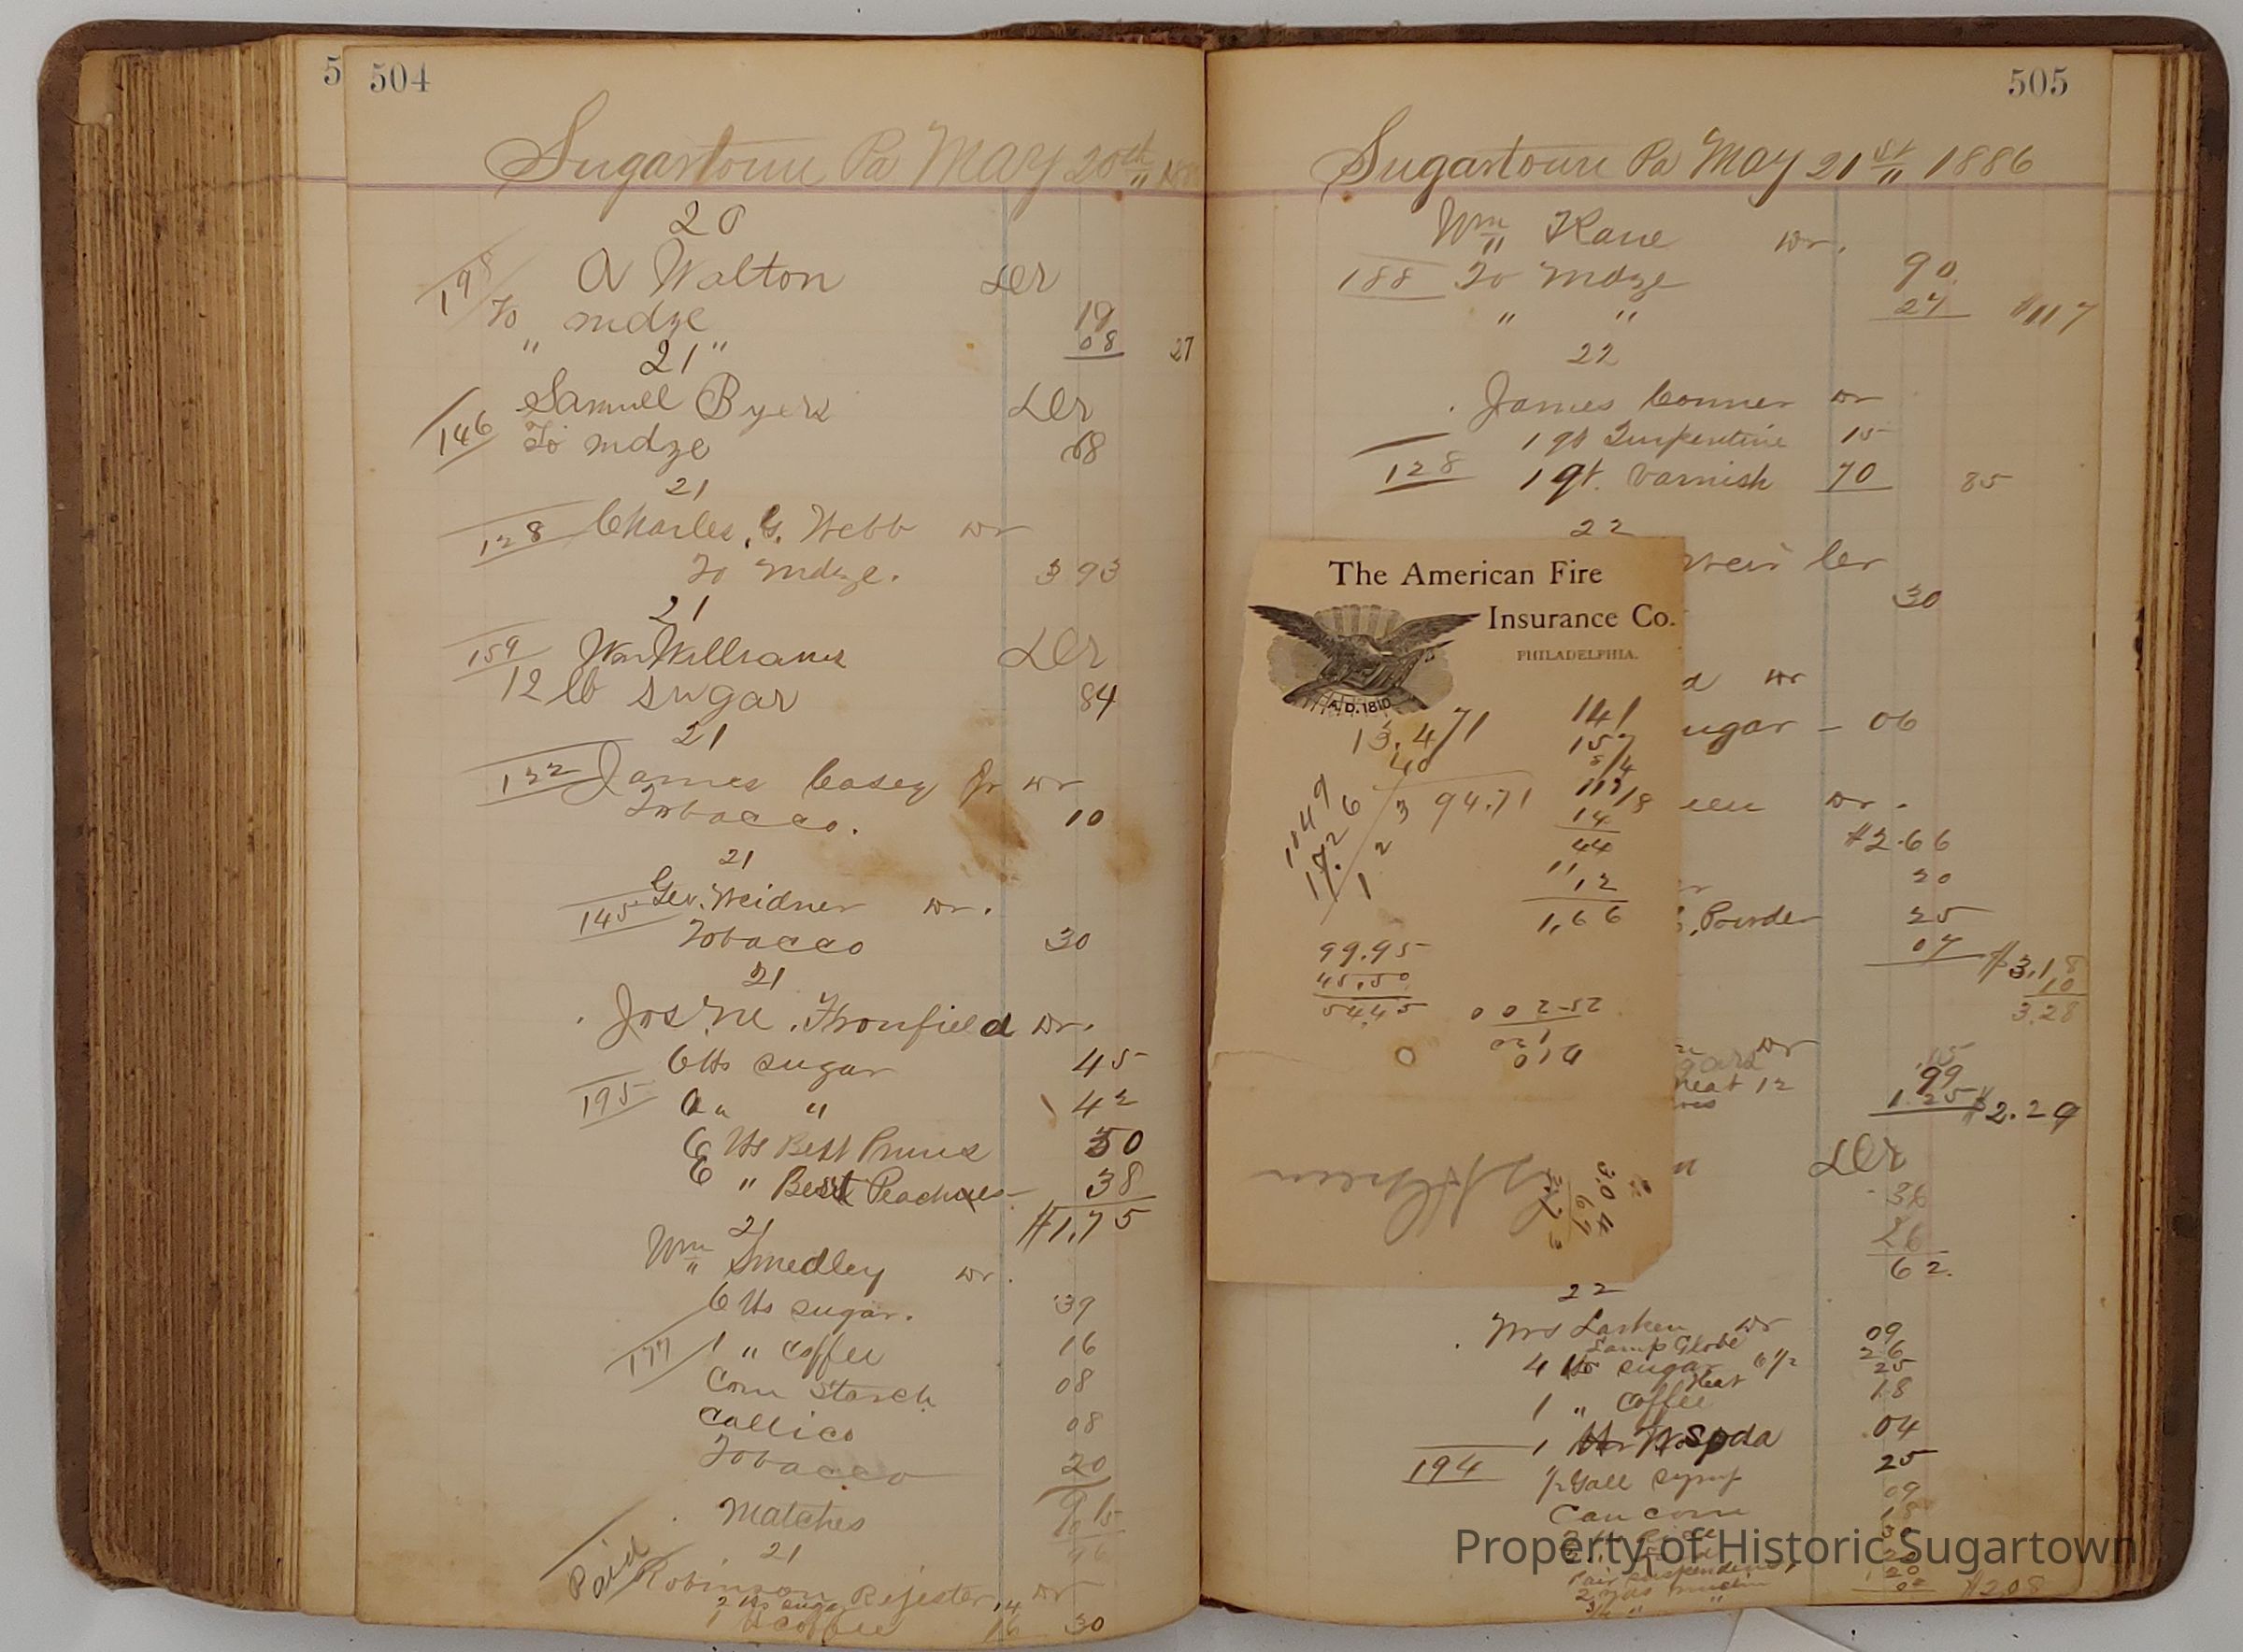 5 504
Sugartown Pa May 20th
20
198 A Walton Dr
To mdze 19
" " 08 27
21
Samuell Byers Dr
146 To mdze 68
21
128 Charles. G. Webb Dr
To mdze. 3 93
21
159 Wm Williams Dr
12 lb sugar 84
21
122 James Casey Jr Dr
Tobacco. 10
21
145 Geo. Weidner Dr.
Tobacco 30
21
Dr.
6 lbs sugar 45
195 6 " " 42
6 lbs Best Prunes 50
6 " Best Peaches 38
$1.75
21
Wm Smedley Dr.
6 lbs sugar. 39
177 1 " coffee 16
Corn Starch 08
Callico 08
Tobacco 20
Matches
21
Paid Robinson Rejester Dr
2 lbs sugar 14
1 lb coffee 16 30
505
Sugartown Pa May 21st 1886
Wm Kane Dr.
188 To mdze 90
" " 27 $117
22
James Conner Dr
1 qt Turpentine 15
128 1 qt. Varnish 70 85
22
30
Dr
ugar - 06
Dr.
$2.66
20
Powder 25
07 $3.18
10
3.28
Dr
15
99
12
1.25 $2.29
Dr
36
26
62
22
Mrs Larken Dr
Lamp Globe 09
4 lb sugar 6½ 26
Meat 25
1 " coffee 18
1 soda 04
194 ½ Gall syrup 25
Can corn 09
$2.08
The American Fire
Insurance Co.
PHILADELPHIA.
A.D. 1810
13.471
40
3 94.71
2
1
141
157
14
44
12
1,66
99.95
45.50
54.45
Property of Historic Sugartown